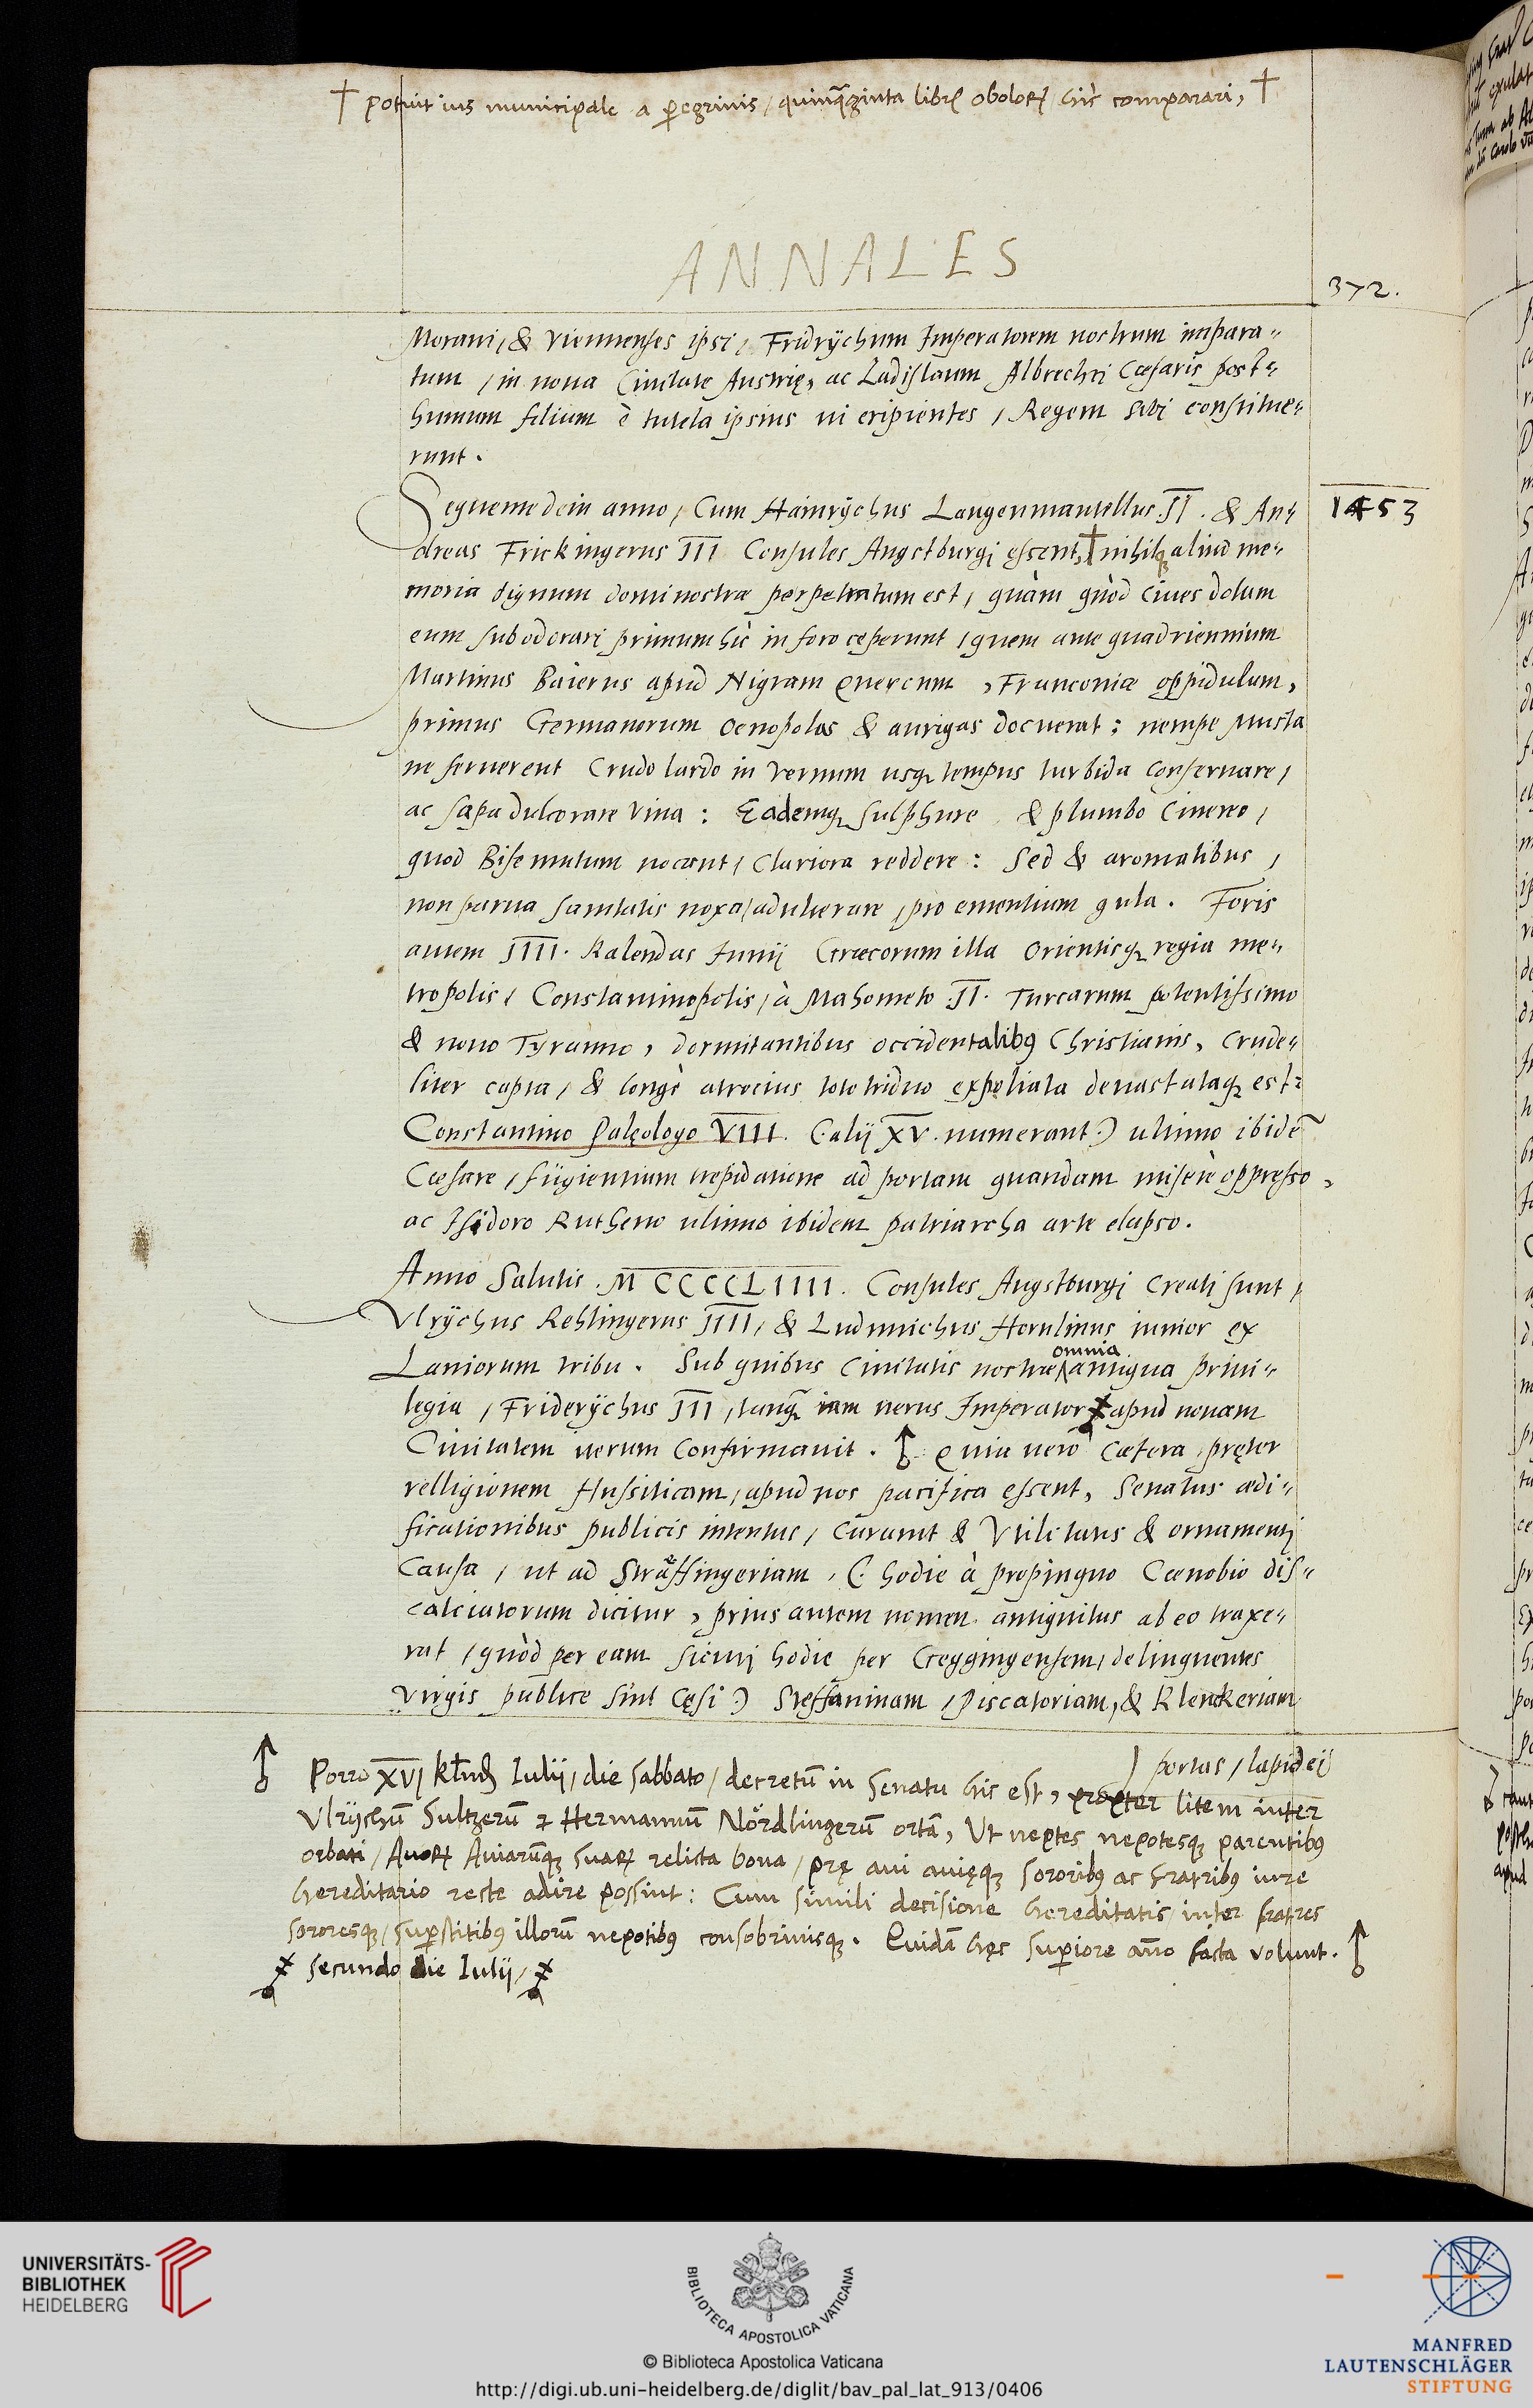 † potuit ius municipale a peregrinis / quinq̃ginta libr̃ obolorꝝ hic comparari, †
ANNALES
372.
Moraui, & Viennenses ipsi, Fridrÿchum Imperatorem nostrum impara-
tum, in noua Ciuitate Austrię, ac Ladislaum Albrechti Cæsaris post-
humum filium è tutela ipsius ui eripientes, Regem sibi constitue-
runt.
Sequente dein anno, Cum Hainrÿchus Langenmantellus II. & An-
1453
dreas Frickingerus III Consules Augstburgi essent, † nihilqꝫ aliud me-
moria dignum domi nostræ perpetratum est, quàm quòd Ciues dolum
eum subodorari primum hic in foro cęperunt, quem ante quadriennium
Martinus Baierus apud Nigram Quercum, Franconiæ oppidulum,
primus Germanorum Oenopolas & aurigas docuerat: nempe Musta
ne feruerent Crudo lardo in Vernum usqꝫ tempus turbida conseruare,
ac sapa dulcorare Vina: Eademqꝫ sulphure & plumbo Cinereo,
quod Bisemutum uocant, Clariora reddere: Sed & aromatibus,
non parua sanitatis noxa, adulterare, pro ementium gula. Foris
autem IIII. Kalendas Iunij Græcorum illa Orientisqꝫ regia me-
tropolis, Constantinopolis, à Mahometo .II. Turcarum potentissimo
& nouo Tyranno, dormitantibus occidentalibꝰ Christianis, Crude-
liter capta, & longè atrocius toto triduo expoliata deuastataqꝫ est:
Constantino Palęologo VIII. (alij XV. numerant) ultimo ibidẽ
Cæsare, fugientium trepidatione ad portam quandam miserè oppresso,
ac Isidoro Rutheno ultimo ibidem patriarcha arte elapso.
Anno Salutis .M CCCCLIIII. Consules Augstburgi Creati sunt,
Vlrÿchus Rehlingerus IIII, & Ludouichus Hornlinus iunior ex
Laniorum tribu. Sub quibus Ciuitatis nostræ omnia antiqua priui-
legia, Friderÿchus III, tanq̃ iam uerus Imperator apud nouam
Ciuitatem iterum Confirmauit. Quia uerò Cætera, pręter
relligionem Hussiticam, apud nos pacifica essent, Senatus ædi-
ficationibus publicis intentus, Curauit & Vtilitatis & ornamenti
Causa, ut ad Sträffingeriam, (hodie à propinquo Cœnobio dis-
calciatorum dicitur, prius autem nomen antiquitus ab eo traxe-
rat, quòd per eam sicuti hodie per Geggingensem, delinquentes
Virgis publice sint Cęsi) Steffaninam, Piscatoriam, & Klenckeriam
portas, lapidei
Porro XVI klñdꝭ Iulij, die sabbato, decretũ in Senatu hic est, propter litem inter
Vlrÿchũ Sultzerũ ⁊ Hermannũ Nördlingerũ ortã, Vt neptes nepotesqꝫ parentibꝰ
orbati, Auorꝝ Auiarũqꝫ suarꝝ relicta bona, prę aui auięqꝫ sororibꝰ ac fratribꝰ iure
hereditario recte adire possint: Cum simili decisione hereditatis inter fratres
sororesqꝫ, superstitibꝰ illorũ nepotibꝰ consobrinisqꝫ. Quidã hęc superiore año facta volunt.
secundo die Iulij,
UNIVERSITÄTS-
BIBLIOTHEK
HEIDELBERG
BIBLIOTECA APOSTOLICA VATICANA
© Biblioteca Apostolica Vaticana
http://digi.ub.uni-heidelberg.de/diglit/bav_pal_lat_913/0406
MANFRED
LAUTENSCHLÄGER
STIFTUNG